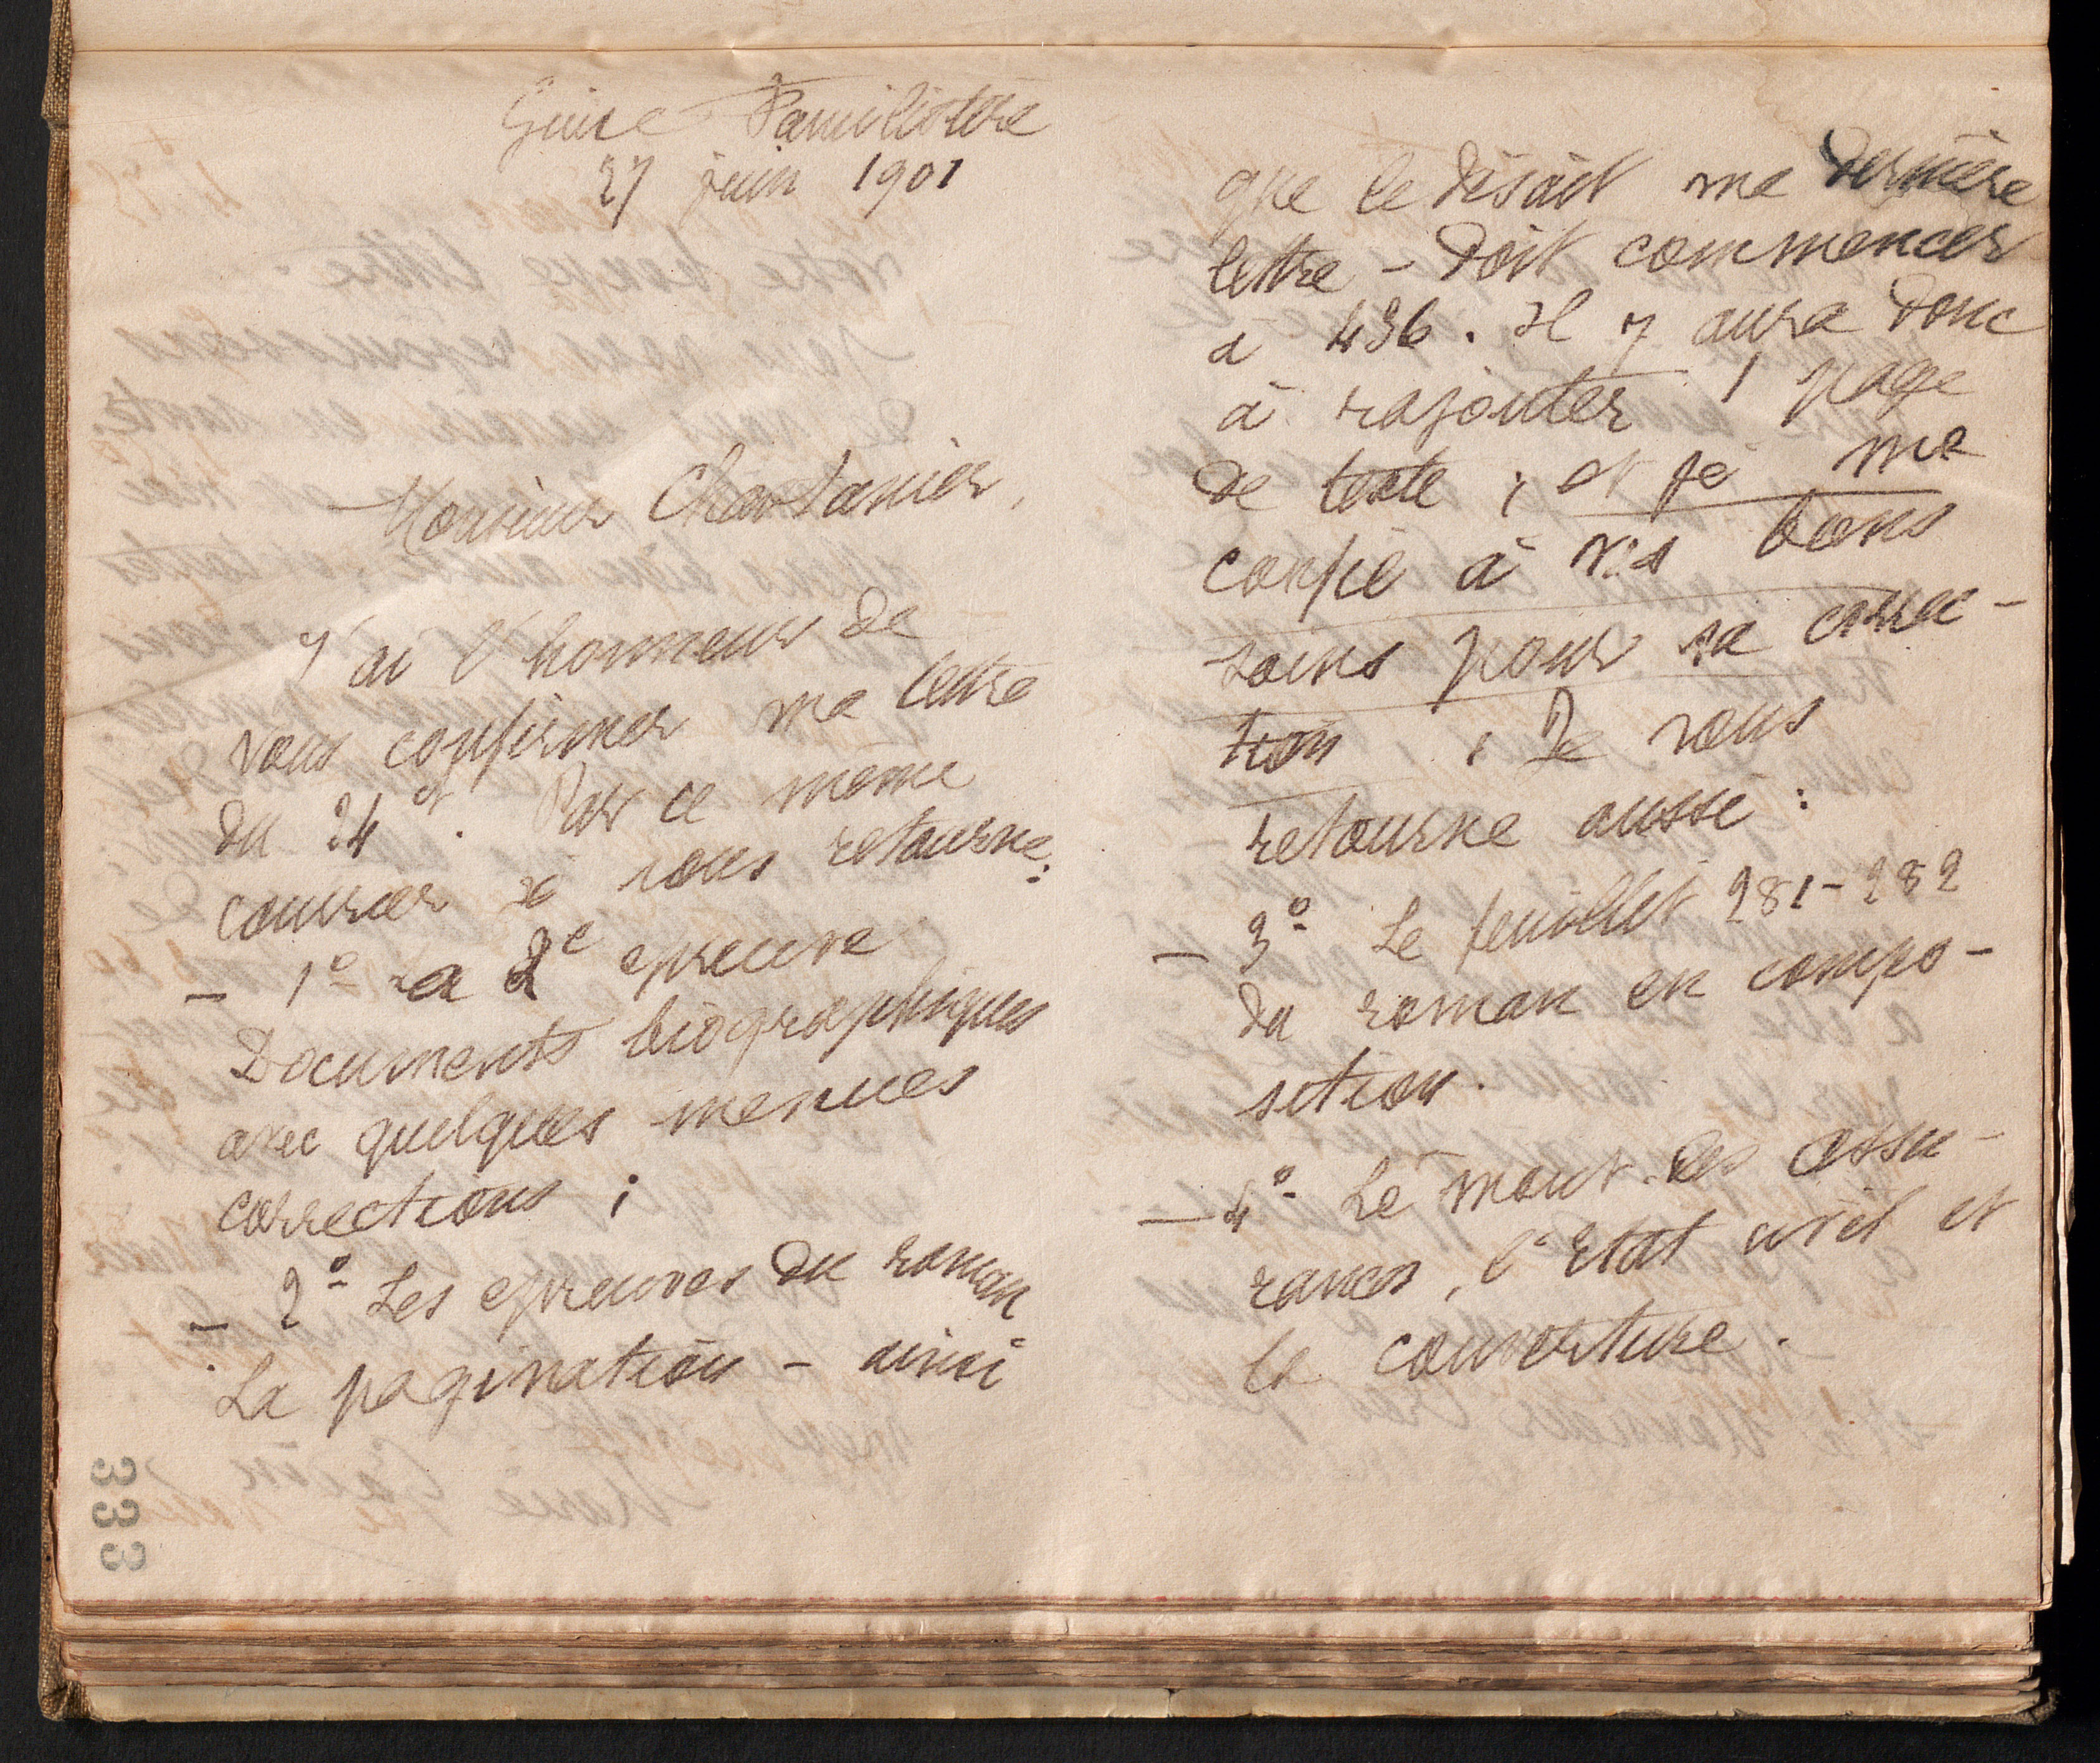 Guise Familistère
27 juin 1901
Monsieur Chastanier,
J'ai l'honneur de
vous confirmer ma lettre
du 24 ct. Par ce même
courrier je vous retourne:
— 1° La 2e epreuve
Documents biographiques
avec quelques menues
corrections ;
— 2° Les epreuves du roman
La pagination — ainsi
333
que le disait ma dernière
lettre — doit commencer
à 436. Il y aura donc
à rajouter 1 page
de texte ; et je me
confie à vos bons
soins pour sa correc-
tion ; Je vous
retourne aussi :
— 3° Le feuillet 281-282
du roman en compo-
sition.
— 4° Le mouv. des assu-
rances, l'Etat civil et
la couverture.